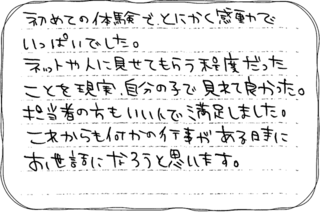 初めての体験でとにかく感動で
いっぱいでした。
ネットや人に見せてもらう程度だった
ことを現実、自分の子で見れて良かった。
担当者の方もいい人で満足しました。
これからも何かの行事がある時に
お世話になろうと思います。